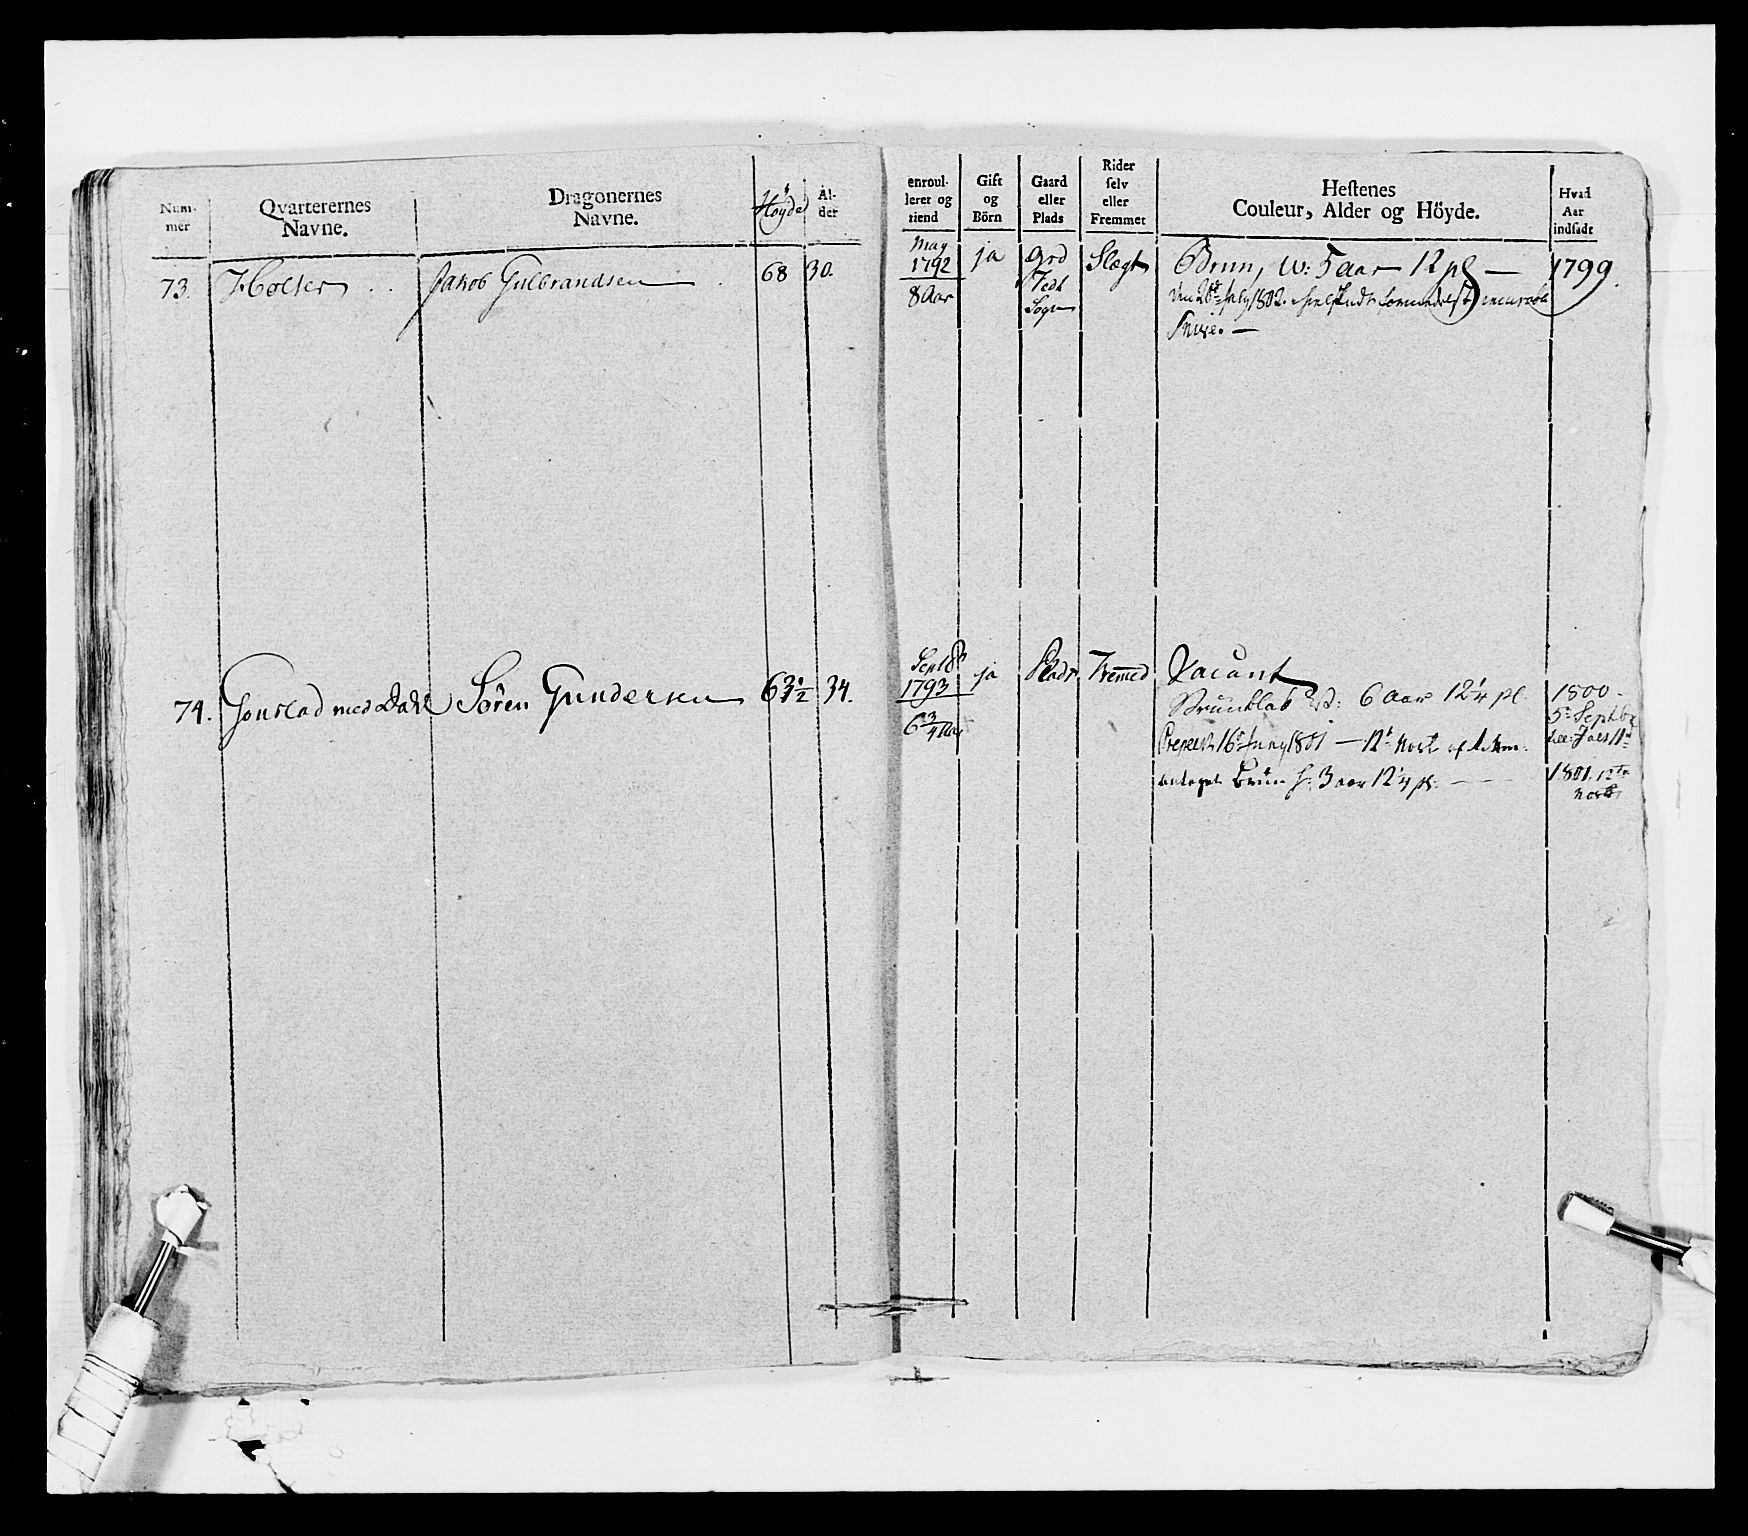 Num-
mer
Qvarterernes
Navne.
Dragonernes
Navne.
Høyde
Al-
der
enroul-
leret og
tiend
Gift
og
Börn
Gaard
eller
Plads
Rider
selv
eller
Fremmet
Hestenes
Couleur, Alder og Höyde.
Hvad
Aar
indsadt
73. Holter Jakob Gulbrandsen 68 30.
May
1792
8 Aar
ja
Grd
Fedt
Sogn
Slægt
Brun, W: 5 aar 12 pl —
Den 26de July 1802
1799.
74. Gonstad med Dahl Søren Gundersen 63 1/2 34.
Septbr
1793
6 3/4 Aar
ja
Plads
Fremed
Vacant
6 Aar 12 1/4 pl.
16de Juny 1801 — 12te
antaget Brun H: 3 aar 12 1/4 pl. —
1800.
5te Septbr
1801. 12te